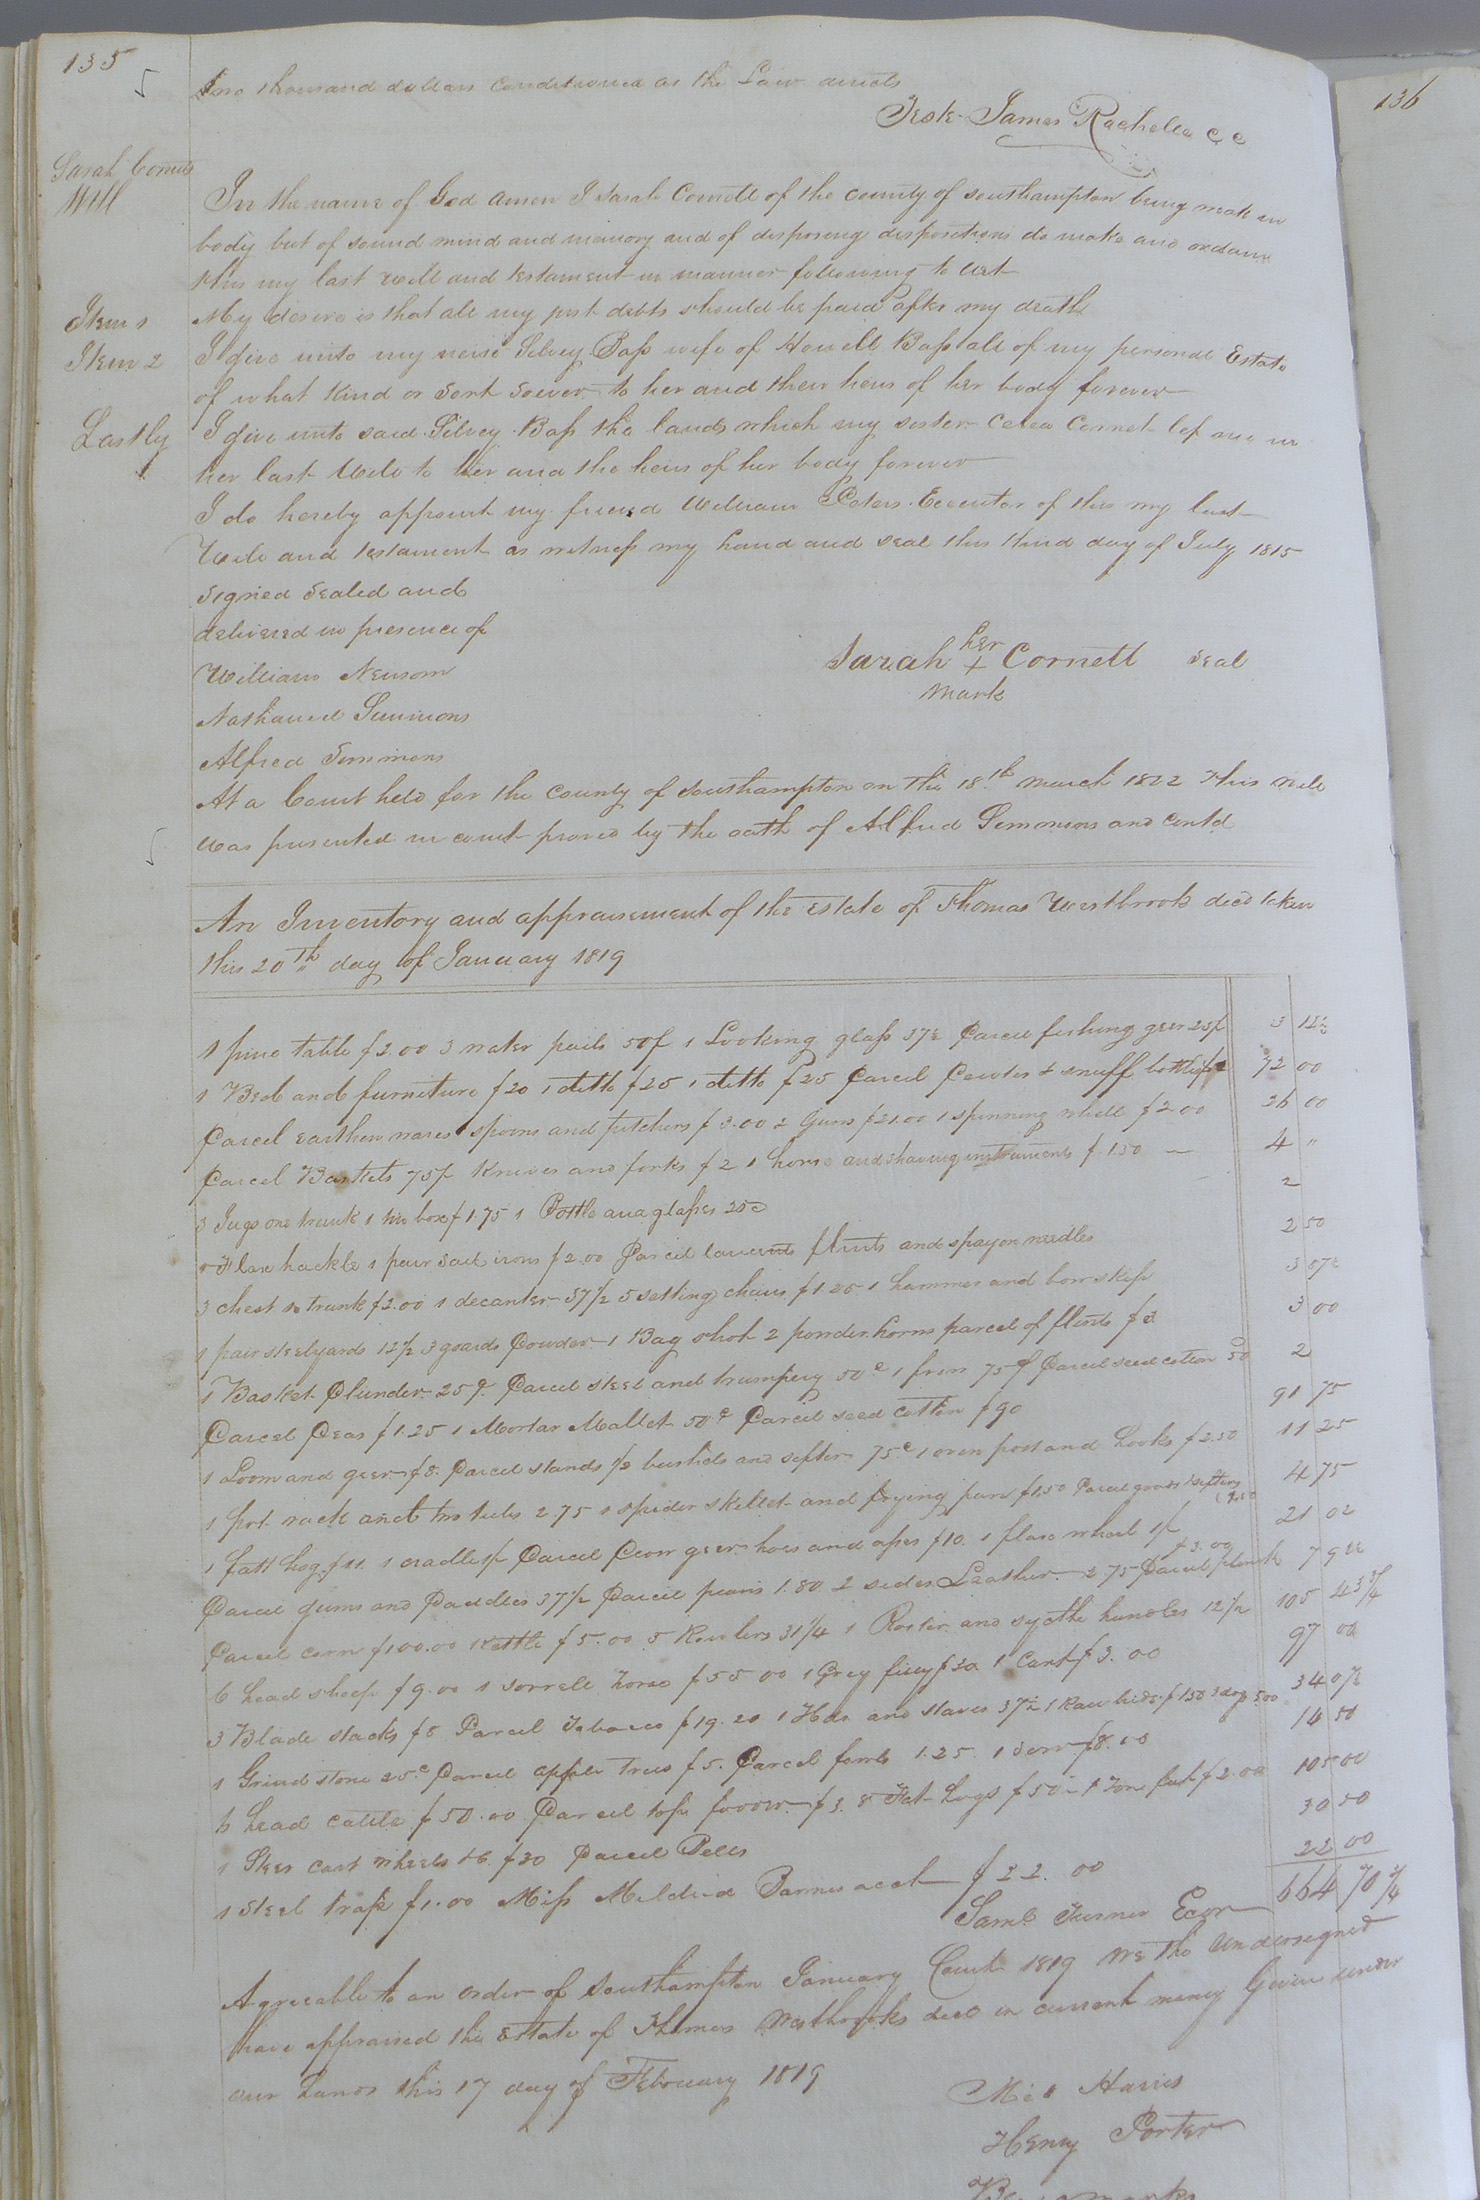 135
136
two thousand dollars conditioned as the Law directs
Teste James Rochelle C C
Sarah Cornets
Will
In the name of God amen I Sarah Cornett of the county of Southampton being weak in
body but of sound mind and memory and of disposing dispositions do make and ordain
this my last will and testament in manner following to wit
Item 1 My desire is that all my just debts should be paid after my death
Item 2 I give unto my neice Silvey Bass wife of Howell Bass all of my personal Estate
of what kind or sort soever to her and their heirs of her body forever
Lastly I give unto said Silvey Bass the lands which my sister Celea Cornet lef me in
her last Will to her and the heirs of her body forever
I do hereby appoint my friend William Peters Executor of this my last
Will and testament as witness my hand and seal this third day of July 1815
Signed Sealed and
delivered in presence of
William Newsom
Nathaniel Simmons
Alfred Simmons
Sarah her + Cornett Seal
mark
At a Court held for the county of Southampton on the 18th March 1822 This will
was presented in court proved by the oath of Alfred Simmons and contd
An Inventory and appraisement of the Estate of Thomas Westbrook decd taken
this 20th day of January 1819
1 pine table $2.00 3 water pails 50 1 Looking glass 37½ Parcel fishing geer 25 3 12½
1 Bed and furniture $20 1 ditto $25 1 ditto $25 Parcel Pewter & snuff bottle $2 72 00
Parcel earthen wares spoons and pitchers $3.00 2 Guns $21.00 1 spinning wheel $2.00 26 00
Parcel Baskets 75 Knives and forks $2 1 horse and shaving instruments $1.50 4 "
3 Jugs one trunk 1 tin box $1.75 1 Bottle and glasses 25c 2
1 Flax hackle 1 pair sad irons $2.00 Parcel flints and needles 2 50
3 chest 1 trunk $2.00 1 decanter 37½ 5 setting chairs $1.25 1 hammer and 3 87½
1 pair steelyards 12½ 3 goards Powder 1 Bag shot 2 powder horns parcel of flints $3 3 00
1 Basket Plunder 25c Parcel steel and trumpery 50c 1 75 Parcel seed cotton 50 2
Parcel Peas $1.25 1 Mortar Mallet 50c Parcel seed cotton $90 91 75
1 Loom and geer $8 Parcel stands ½ bushels and sifter 75c 1 oven pot and hooks $2.50 11 25
1 pot rack and two tubs 2.75 1 spider skillet and frying pan $1.50 Parcel 4 75
1 fatt hog $11 1 cradle Parcel Plow geer hoes and axes $10 1 flax wheel 21 00
Parcel gums and Paddles 37½ Parcel 1.80 2 sides Leather 2 75 Parcel plank $3.00 7 92½
Parcel corn $100.00 Kettle $5.00 5 31¼ 1 and sythe handles 12½ 105 43¾
6 head sheep $9.00 1 sorrell horse $55 00 1 Grey filley $30 1 Cart $3.00 97 00
3 Blade stacks $8 Parcel Tobacco $19.20 1 Hdr and staves 37½ 1 Raw hide $1.50 3 dogs 5.00 34 07½
1 Grind stone 25c Parcel apple trees $5. Parcel fowls 1.25. 1 Sow $8.00 14 50
6 head cattle $50.00 Parcel tops fodder $3. 8 Fat hogs $50 1 $2.00 105 00
1 Steer cart wheels &c $30 Parcel Pelts 30 50
1 Steel trap $1.00 Miss Mildred Barnes acct $22.00 22 00
664 70¾
Saml Turner Exor
Agreeable to an order of Southampton January Court 1819 We the undersigned
have appraised the Estate of Thomas Westbrooks decd in current money Given under
our hands this 17 day of February 1819
Harris
Henry Porter